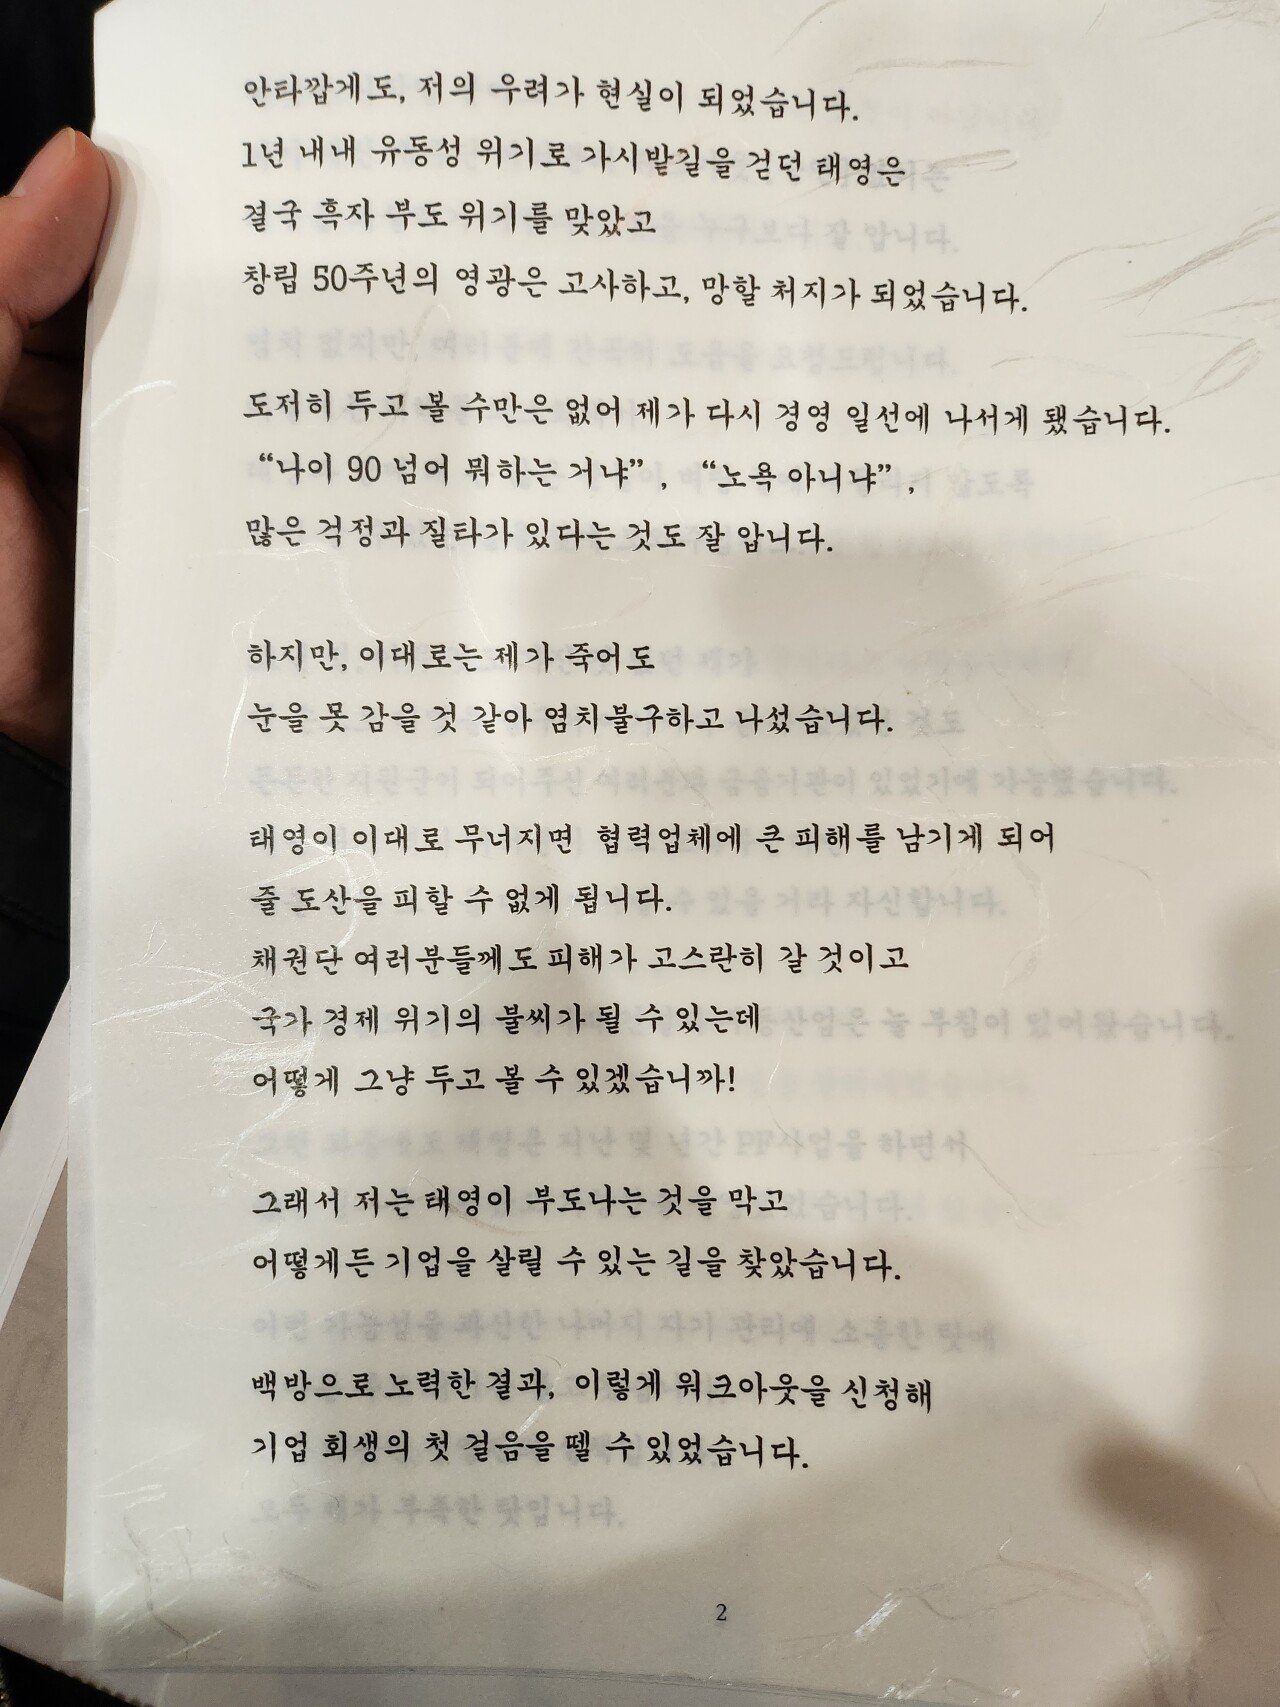 안타깝게도, 저의 우려가 현실이 되었습니다.
1년 내내 유동성 위기로 가시밭길을 걷던 태영은
결국 흑자 부도 위기를 맞았고
창립 50주년의 영광은 고사하고, 망할 처지가 되었습니다.
도저히 두고 볼 수만은 없어 제가 다시 경영 일선에 나서게 됐습니다.
“나이 90 넘어 뭐하는 거냐”, “노욕 아니냐”,
많은 걱정과 질타가 있다는 것도 잘 압니다.
하지만, 이대로는 제가 죽어도
눈을 못 감을 것 같아 염치불구하고 나섰습니다.
태영이 이대로 무너지면 협력업체에 큰 피해를 남기게 되어
줄 도산을 피할 수 없게 됩니다.
채권단 여러분들께도 피해가 고스란히 갈 것이고
국가 경제 위기의 불씨가 될 수 있는데
어떻게 그냥 두고 볼 수 있겠습니까!
그래서 저는 태영이 부도나는 것을 막고
어떻게든 기업을 살릴 수 있는 길을 찾았습니다.
백방으로 노력한 결과, 이렇게 워크아웃을 신청해
기업 회생의 첫 걸음을 뗄 수 있었습니다.
2